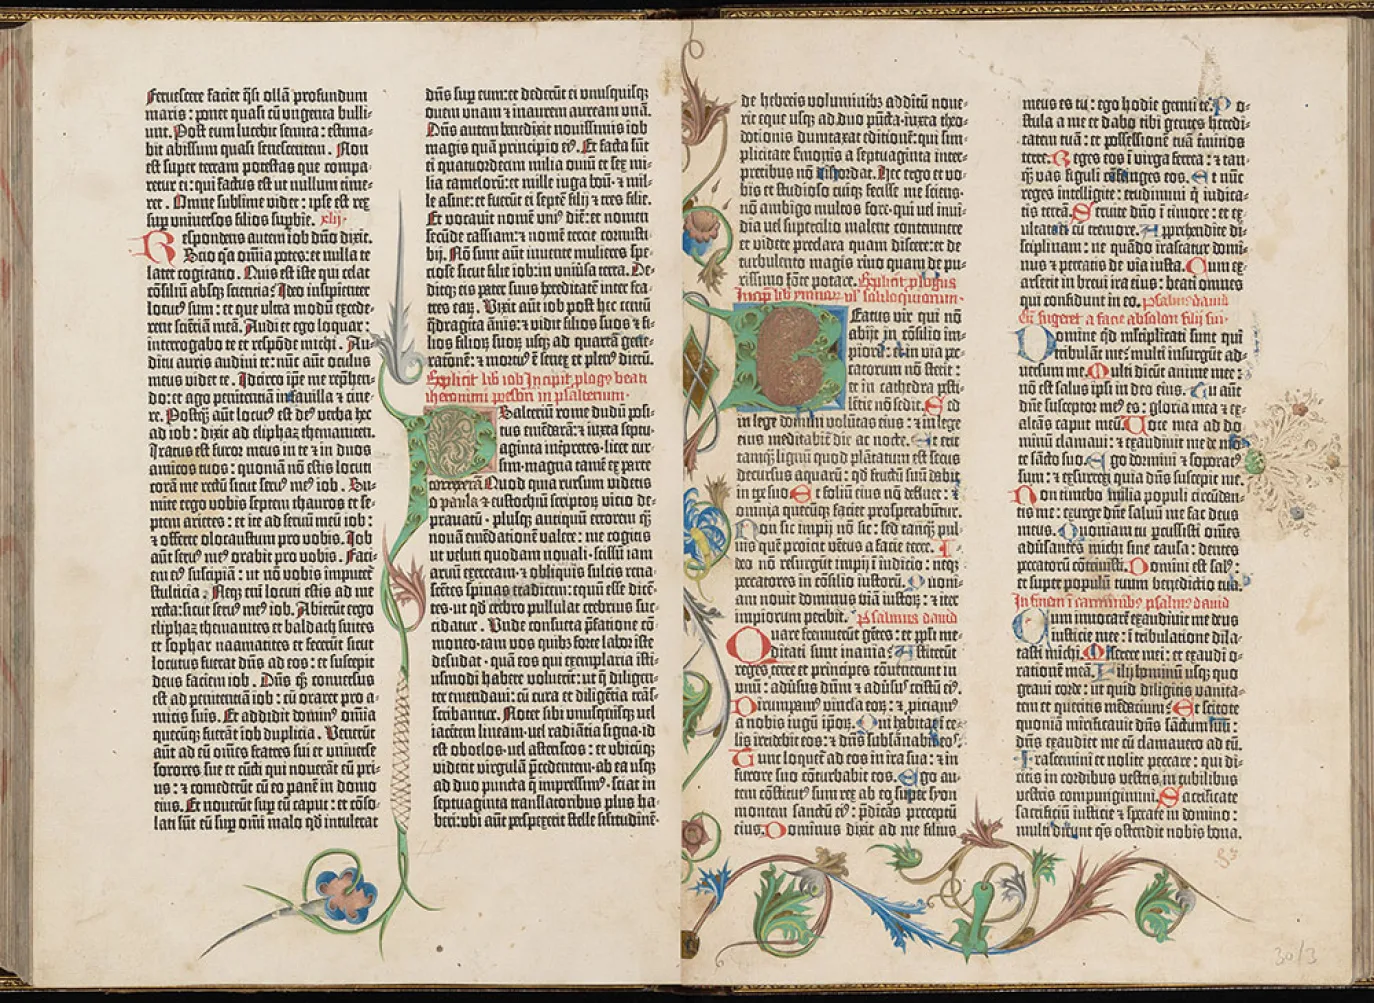 feruescere faciet q̄si ollā profundum
maris: ponet quasi cū ungenta bulli-
unt. Post eum lucebit semita: estima-
bit abissum quasi senescentem. Non
est super terram potestas que compa-
retur ei: qui factus est ut nullum time-
ret. Omne sublime videt: ipse est rex
sup universos filios supbie. xlij
Respondens autem iob dn̄o dixit.
Scio q̄a om̄ia potes: et nulla te
latet cogitatio. Quis est iste qui celat
cōsiliū absq̄ sciencia? Ideo insipienter
locutꝰ sum: et que ultra modū excede-
rent sciētiā meā. Audi et ego loquar:
interrogabo te et respōde michi. Au-
ditu auris audivi te: nūc aūt oculus
meus videt te. Idcirco ip̄e me rep̄hen-
do: et ago penitentiā in favilla et cine-
re. Postq̄ aūt locutꝰ est deꝰ verba hec
ad iob: dixit ad eliphaz themanitem.
Iratus est furor meus in te et in duos
amicos tuos: quoniā nō estis locuti
corā me rectū sicut servꝰ meꝰ iob. Su-
mite ergo vobis septem thauros et se-
ptem arietes: et ite ad servū meū iob:
ꝛ offerte olocaustum pro vobis. Iob
aūt servꝰ meꝰ orabit pro vobis. Faci-
em eiꝰ suscipiā: ut nō vobis imputet
stulticia. Neqꝫ em̄ locuti estis ad me
recta: sicut servꝰ meꝰ iob. Abierūt ergo
eliphaz themanites et baldach suites
et sophar naamatites et fecerūt sicut
locutus fuerat dn̄s ad eos: et suscepit
deus faciem iob. Dn̄s qꝫ conversus
est ad penitentiā iob: cū oraret pro a-
micis suis. Et addidit dominꝰ om̄ia
quecūqꝫ fuerāt iob duplicia. Venerūt
aūt ad eū om̄es fratres sui et universe
sorores sue et cūcti qui noverāt eū pri-
us: ꝛ comederūt cū eo panē in domo
eius. Et moverūt sup eū caput: et cōso-
lati sūt eū sup om̄i malo qd̄ intulerat
dn̄s sup eum: et dederūt ei unusquisqꝫ
ovem unam ꝛ inaurem auream unā.
Dn̄s autem benedixit novissimis iob
magis quā principio eiꝰ. Et facta sūt
ei quatuordecim milia oviū et sex mi-
lia camelorū: et mille iuga boū: ꝛ mil-
le asine: et fuerūt ei septē filij ꝛ tres filie.
Et vocavit nomē uniꝰ diē: et nomen
secūde cassiam: ꝛ nomē tercie cornusti-
bij. Nō sunt aūt invente mulieres spe-
ciose sicut filie iob: in univ̄sa terra. De-
ditqꝫ eis pater suus hereditatē inter fra-
tres earꝝ. Vixit aūt iob post hec centū
q̄draginta ānis: ꝛ vidit filios suos ꝛ fi-
lios filiorꝝ suorꝝ usqꝫ ad quartā gene-
rationē: ꝛ mortuꝰ ē senex et plenꝰ dierū.
Explicit lib iob Incipit plogꝰ beati
iheronimi presbit̄i in psalterium
Psalterium rome dudū posi-
tus emēdarā: ꝛ iuxta septu-
aginta int̄pretes. licet cur-
sim. magna tamē ex parte
correxerā. Quod quia rursum videtis
o paula ꝛ eustochiū scriptorꝝ vicio de-
pravatū. plusqꝫ antiquū errorem qꝫ
novā emēdationē valere: me cogitis
ut veluti quodam novali. scissū iam
arvū exerceam. ꝛ obliquis sulcis rena-
scētes spinas eradicem: equū esse dicē-
tes. ut qd̄ crebro pullulat crebrius suc-
cidatur. Unde consueta p̄fatione cō-
moneo. tam vos quibꝫ forte labor iste
desudat. quā eos qui exemplaria isti-
usmodi habere voluerīt: ut q̄ diligen-
ter emendavi: cū cura et diligētia trās-
scribantur. Notet sibi unusquisqꝫ vel
iacētem lineam. vel radiātia signa. id
est obolos: vel astericos: et ubicūqꝫ
viderit virgulā p̄cedentem. ab ea usqꝫ
ad duo puncta q̄ impressimꝰ. sciat in
septuaginta translatoribus plus ha-
beri: ubi aūt perspexerit stelle similitudinē.
de hebreis voluminibꝫ additū nove-
rit eque usqꝫ ad duo pūcta. iuxta theo-
dotionis dumtaxat editionē: qui sim-
plicitate sermonis a septuaginta inter-
pretibus nō discordat. Hec ergo et vo-
bis et studioso cuiqꝫ fecisse me sciens.
nō ambigo multos fore. qui vel invi-
dia vel supercilio malent contemnere
et videre preclara quam discere: et de
turbulento magis rivo quam de pu-
rissimo fōte potare. Explicit plogus
Incipit lib ymnorꝝ vel soliloquiorum
Beatus vir qui nō
abijt in cōsilio im-
piorū: et in via pec-
catorum nō stetit:
et in cathedra pesti-
lētie nō sedit. Sed
in lege domini voluntas eius: ꝛ in lege
eius meditabit̄ die ac nocte. Et erit
tamqꝫ lignū quod plātatum est secus
decursus aquarū: qd̄ fructū suū dabit
in tꝑe suo. Et foliū eius nō defluet: ꝛ
omnia quecūqꝫ faciet prosperabūtur.
Non sic impij nō sic: sed tamqꝫ pul-
vis quē proicit vētus a facie terre. I-
deo nō resurgūt impij ī iudicio: neqꝫ
peccatores in cōsilio iustorū. Quoni-
am novit dominus viā iustorꝝ: ꝛ iter
impiorum peribit. Psalmus david
Quare fremuerūt gētes: et pp̄li me-
ditati sunt inania? Astiterūt
reges terre et principes cōvenerunt in
unū: adv̄sus dn̄m ꝛ adv̄sus cristū eiꝰ.
Dirumpamꝰ vincla eorꝝ: ꝛ piciamꝰ
a nobis iugū ip̄orꝝ. Qui habitat ī ce-
lis irridebit eos: ꝛ dn̄s subsānabit eos.
Tunc loquet̄ ad eos in ira sua: ꝛ in
furore suo cōturbabit eos. Ego au-
tem cōstitutꝰ sum rex ab eo super syon
montem sanctū eiꝰ: p̄dicās preceptū
eius. Dominus dixit ad me filius
meus es tu: ego hodie genui te. Po-
stula a me et dabo tibi gentes heredi-
tatem tuā: et possessionē tuā t̄minos
terre. Reges eos ī virga ferrea: ꝛ tan-
qꝫ vas figuli cōfringes eos. Et nūc
reges intelligite: erudimini q̄ iudica-
tis terrā. Servite dn̄o ī timore: et ex-
ultate ei cū tremore. Apprehendite di-
sciplinam: ne quādo irascatur domi-
nus ꝛ pereatis de via iusta. Cum ex-
arserit in brevi ira eius: beati omnes
qui confidunt in eo. Psalmus david
Cū fugeret a facie absalon filij sui
Domine qd̄ multiplicati sunt qui
tribulāt me? multi insurgūt ad-
versum me. Multi dicūt anime mee:
nō est salus ipsi in deo eius. Tu aūt
dn̄e susceptor meꝰ es: gloria mea ꝛ ex-
altās caput meū. Voce mea ad do-
minū clamavi: ꝛ exaudivit me de mō-
te sācto suo. Ego dormivi ꝛ soporatꝰ
sum: ꝛ exsurrexi quia dn̄s suscepit me.
Non timebo milia populi circūdan-
tis me: exurge dn̄e salvū me fac deus
meus. Quoniam tu percussisti om̄es
adv̄santes michi sine causa: dentes
peccatorū cōtrivisti. Domini est salꝰ:
et super populū tuum benedictio tua.
In finem ī carminibꝫ psalmꝰ david
Cum invocarē exaudivit me deus
iusticie mee: ī tribulatione dila-
tasti michi. Miserere mei: et exaudi o-
rationē meā. Filij hominū usqꝫ quo
gravi corde: ut quid diligitis vanita-
tem et queritis mendacium? Et scitote
quoniā mirificavit dn̄s sāctum suū:
dn̄s exaudiet me cū clamavero ad eū.
Irascemini et nolite peccare: qui di-
citis in cordibus vestris in cubilibus
vestris compungimini. Sacrificate
sacrificiū iusticie ꝛ sperate in domino:
multi dicunt qs̄ ostendit nobis bona.
30/3